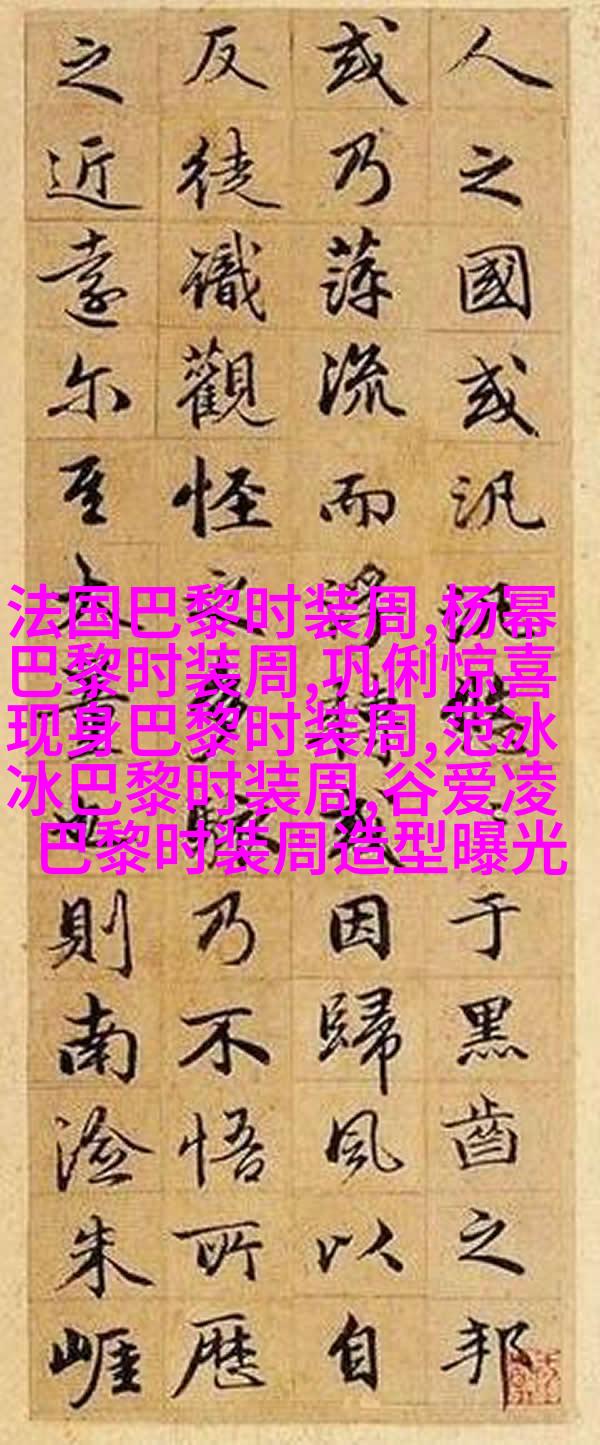 人之國或汎汎悠〻于黑齒之邦
或乃萍流而浮轉或因歸風以自
反徒識觀怪之多駭乃不悟所歷
之近遠尔至大量也則南澰朱崕
法国巴黎时装周,杨幂
巴黎时装周,巩俐惊喜
现身巴黎时装周,范冰
冰巴黎时装周,谷爱凌
巴黎时装周造型曝光